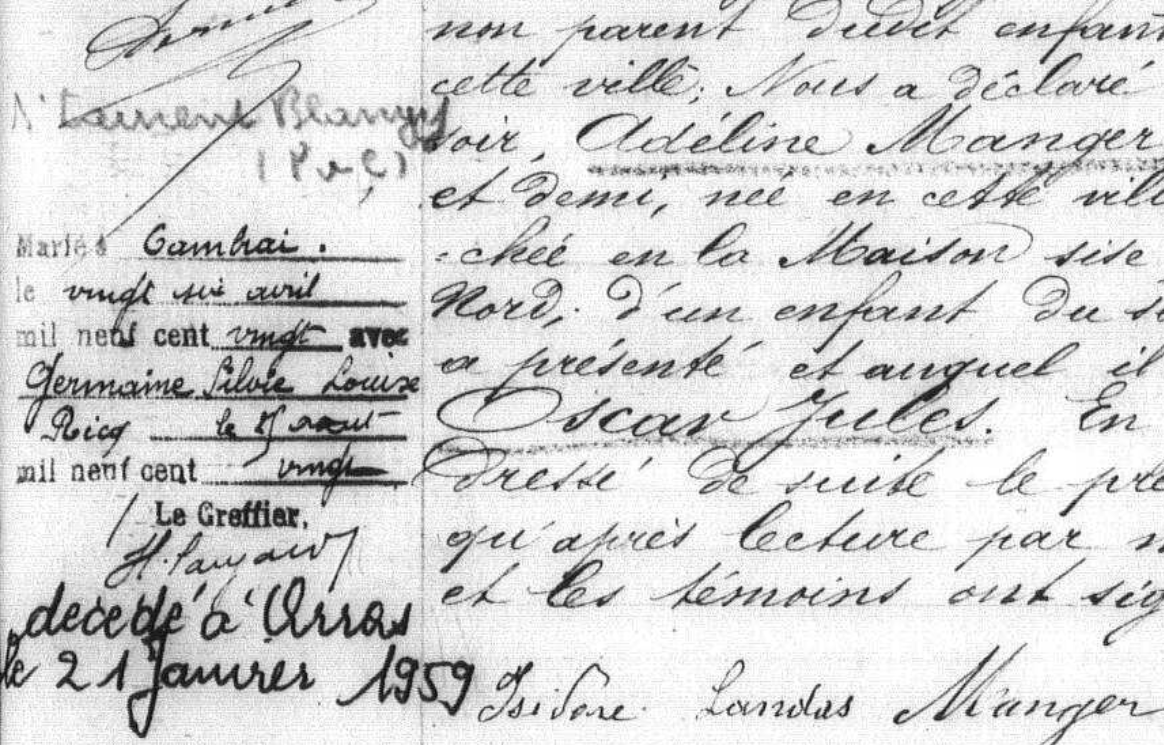 St Laurent Blangy
(P. d. C)
Marié à Cambrai.
le vingt six avril
mil neuf cent vingt avec
Germaine Silvie Louise
Ricq le août
mil neuf cent vingt
Le Greffier,
décédé à Arras
le 21 Janvier 1959
non parent dudit enfant
cette ville; Nous a déclaré
soir, Adéline Manger
et demi, née en cette vill
-chée en la Maison sise
Nord, d'un enfant du s
a présenté et auquel il
Oscar Jules. En
dressé de suite le pré
qu'après lecture par n
et les témoins ont sig
Isidore Landas Manger